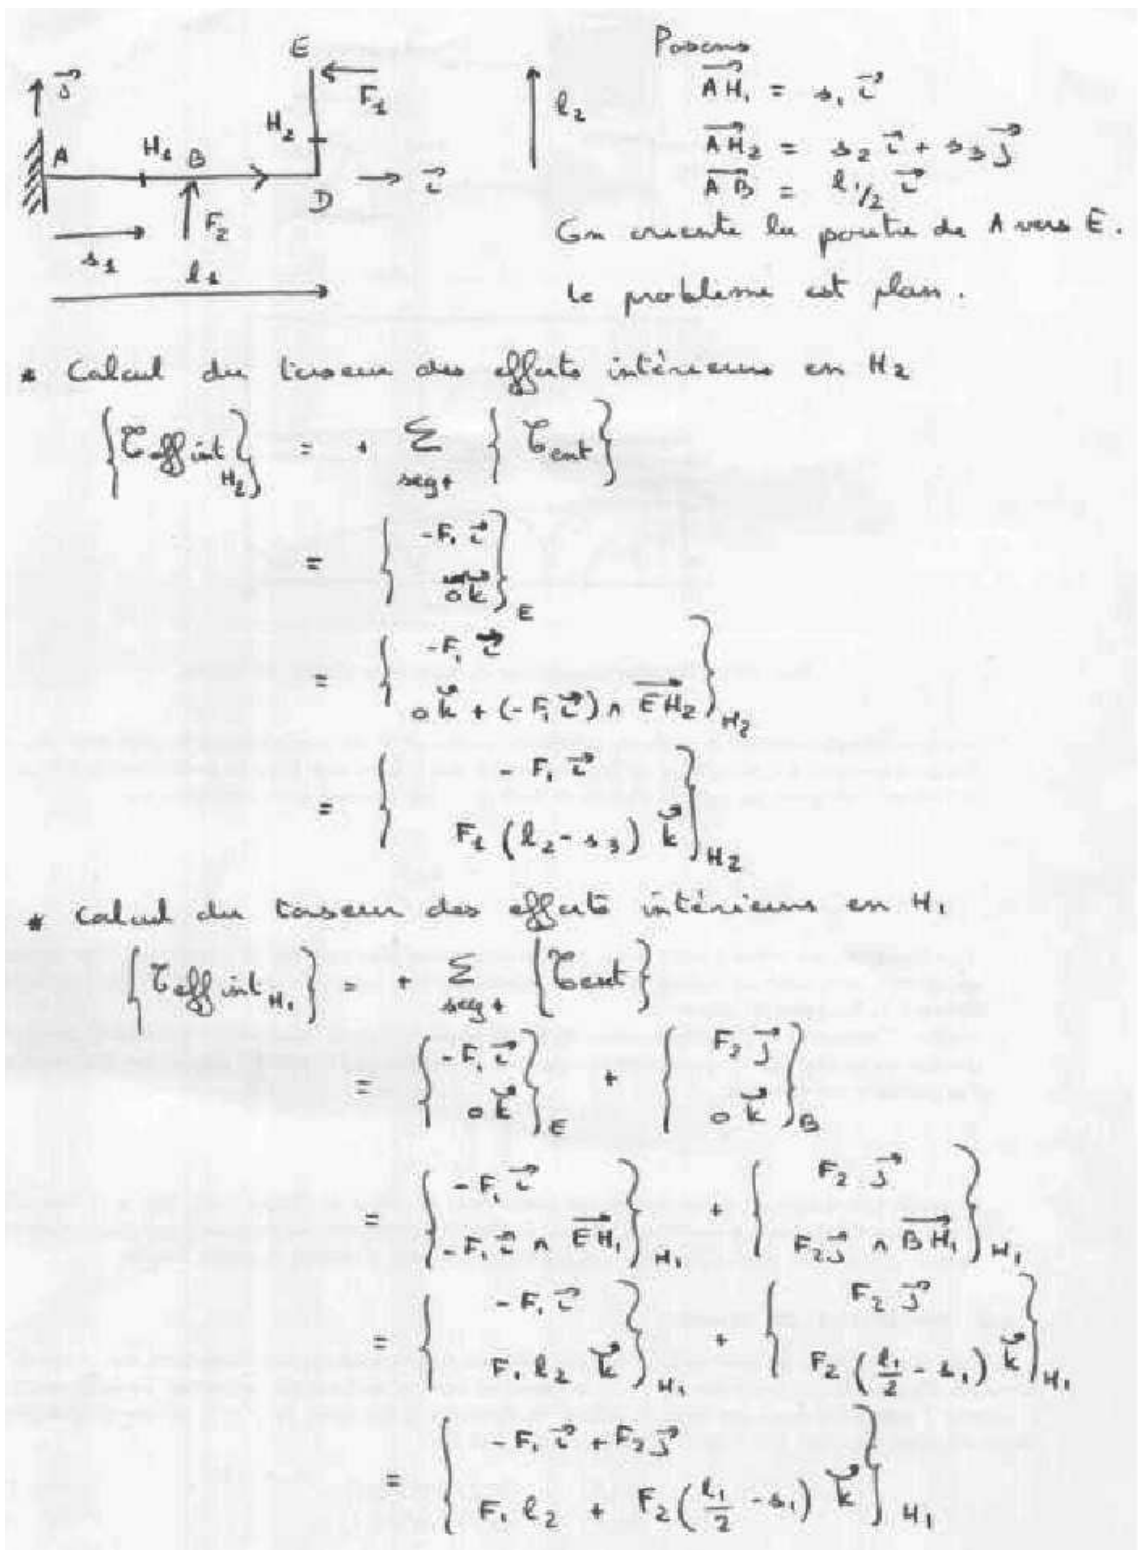 E
Posons
j⃗
F₁
l₂
AH₁⃗ = s₁ i⃗
A H₁ B H₂
AH₂⃗ = s₂ i⃗ + s₃ j⃗
D i⃗
AB⃗ = l₁/₂ i⃗
F₂
On oriente la poutre de A vers E.
s₁
l₁
le problème est plan.
* Calcul du torseur des efforts intérieurs en H₂
{𝒯eff int H₂} = + Σ seg+ {𝒯ext}
= { -F₁ i⃗ ; 0 k⃗ }E
= { -F₁ i⃗ ; 0 k⃗ + (-F₁ i⃗) ∧ EH₂⃗ }H₂
= { -F₁ i⃗ ; F₁ (l₂ - s₃) k⃗ }H₂
* Calcul du torseur des efforts intérieurs en H₁
{𝒯eff int H₁} = + Σ seg+ {𝒯ext}
= { -F₁ i⃗ ; 0 k⃗ }E + { F₂ j⃗ ; 0 k⃗ }B
= { -F₁ i⃗ ; -F₁ i⃗ ∧ EH₁⃗ }H₁ + { F₂ j⃗ ; F₂ j⃗ ∧ BH₁⃗ }H₁
= { -F₁ i⃗ ; F₁ l₂ k⃗ }H₁ + { F₂ j⃗ ; F₂ (l₁/2 - s₁) k⃗ }H₁
= { -F₁ i⃗ + F₂ j⃗ ; F₁ l₂ + F₂ (l₁/2 - s₁) k⃗ }H₁